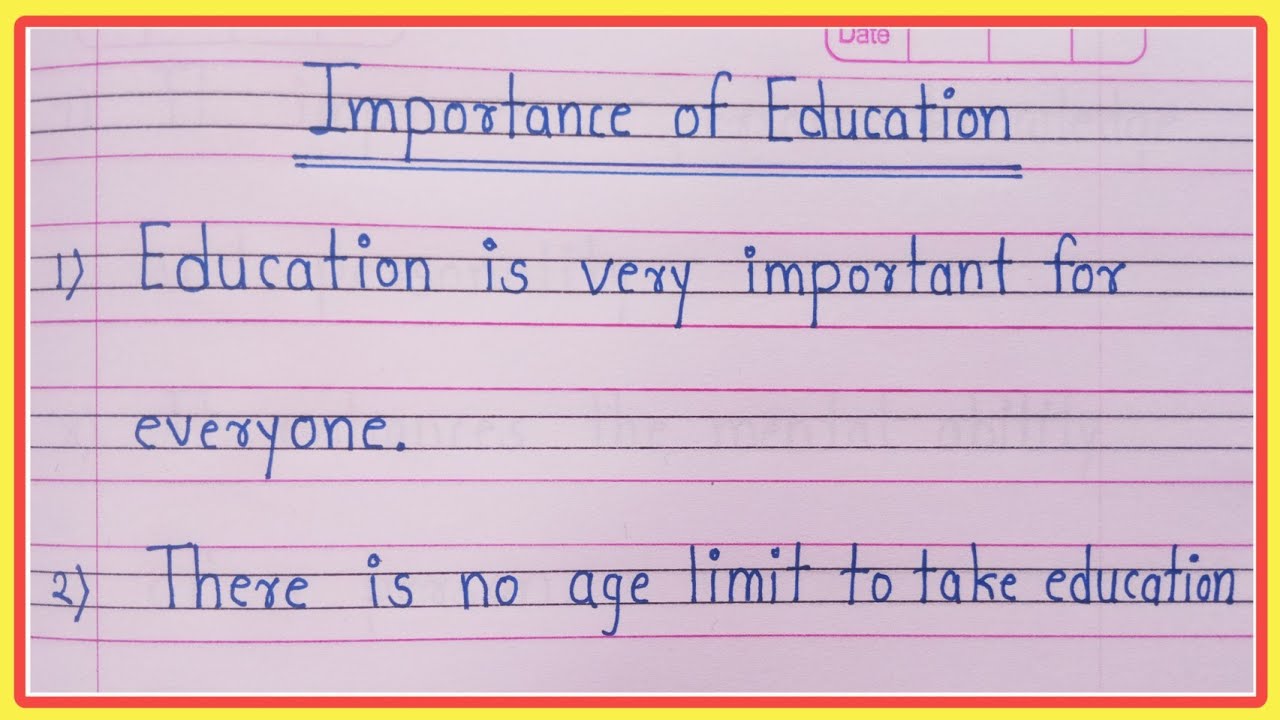 Date
Importance of Education
1) Education is very important for
everyone.
2) There is no age limit to take education